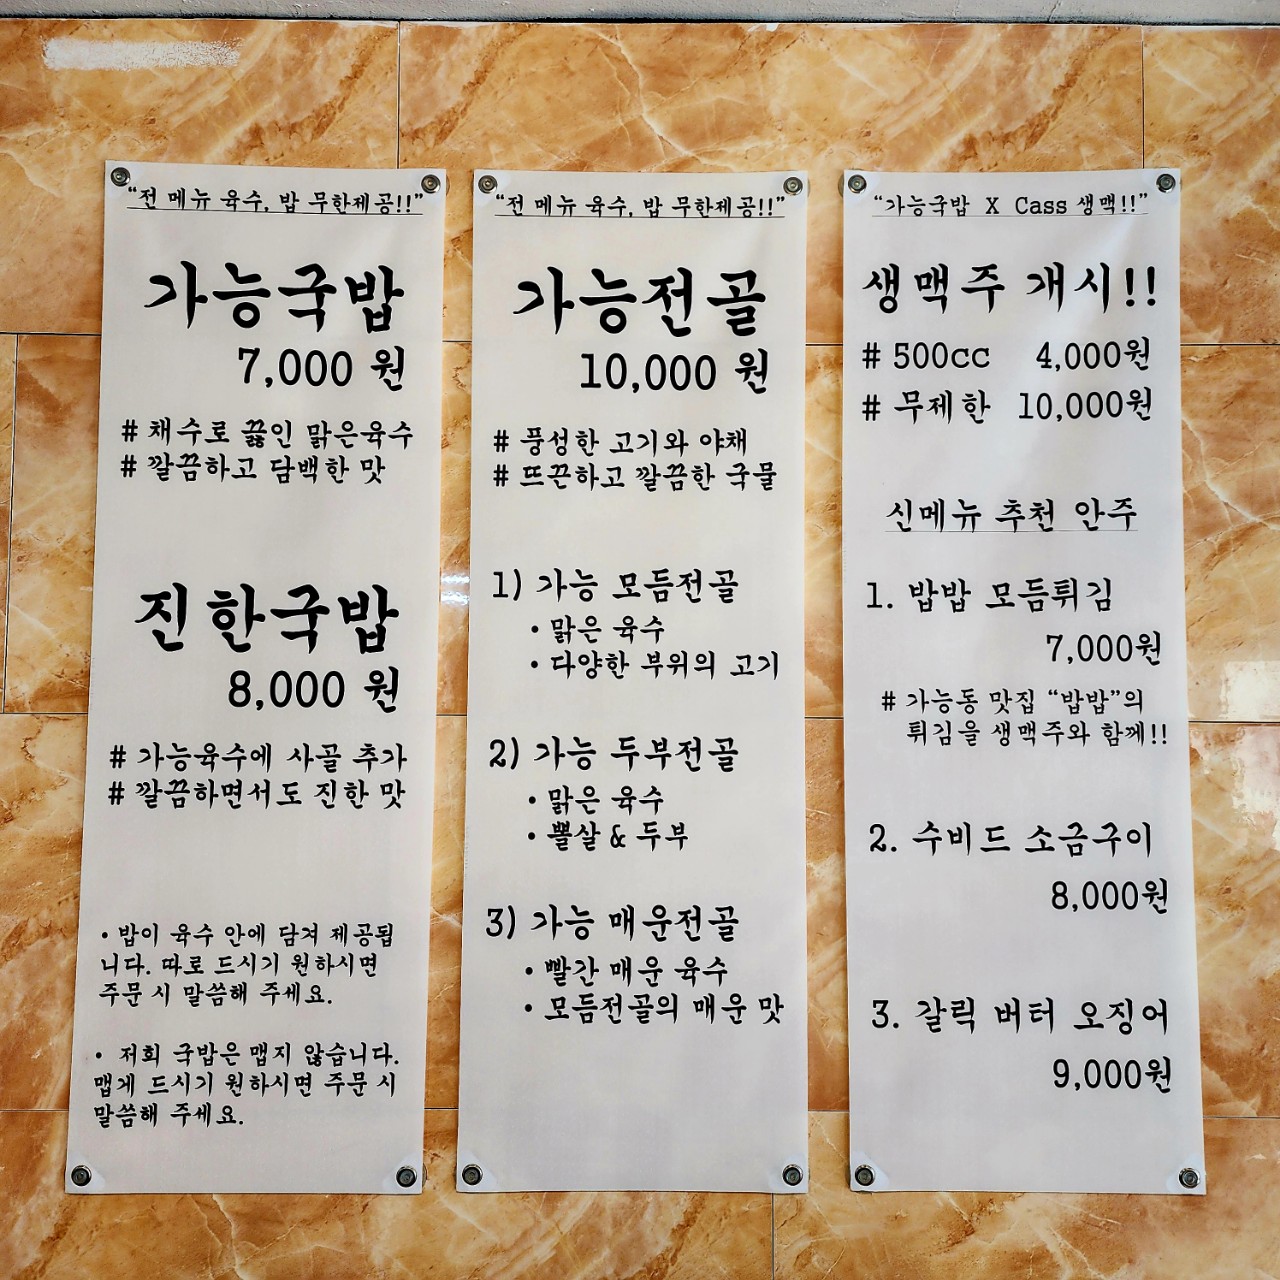 “전 메뉴 육수, 밥 무한제공!!”
가능국밥
7,000 원
# 채수로 끓인 맑은육수
# 깔끔하고 담백한 맛
진한국밥
8,000 원
# 가능육수에 사골 추가
# 깔끔하면서도 진한 맛
• 밥이 육수 안에 담겨 제공됩
니다. 따로 드시기 원하시면
주문 시 말씀해 주세요.
• 저희 국밥은 맵지 않습니다.
맵게 드시기 원하시면 주문 시
말씀해 주세요.
“전 메뉴 육수, 밥 무한제공!!”
가능전골
10,000 원
# 풍성한 고기와 야채
# 뜨끈하고 깔끔한 국물
1) 가능 모듬전골
• 맑은 육수
• 다양한 부위의 고기
2) 가능 두부전골
• 맑은 육수
• 뽈살 & 두부
3) 가능 매운전골
• 빨간 매운 육수
• 모듬전골의 매운 맛
“가능국밥 X Cass 생맥!!”
생맥주 개시!!
# 500cc 4,000원
# 무제한 10,000원
신메뉴 추천 안주
1. 밥밥 모듬튀김
7,000원
# 가능동 맛집 “밥밥”의
튀김을 생맥주와 함께!!
2. 수비드 소금구이
8,000원
3. 갈릭 버터 오징어
9,000원